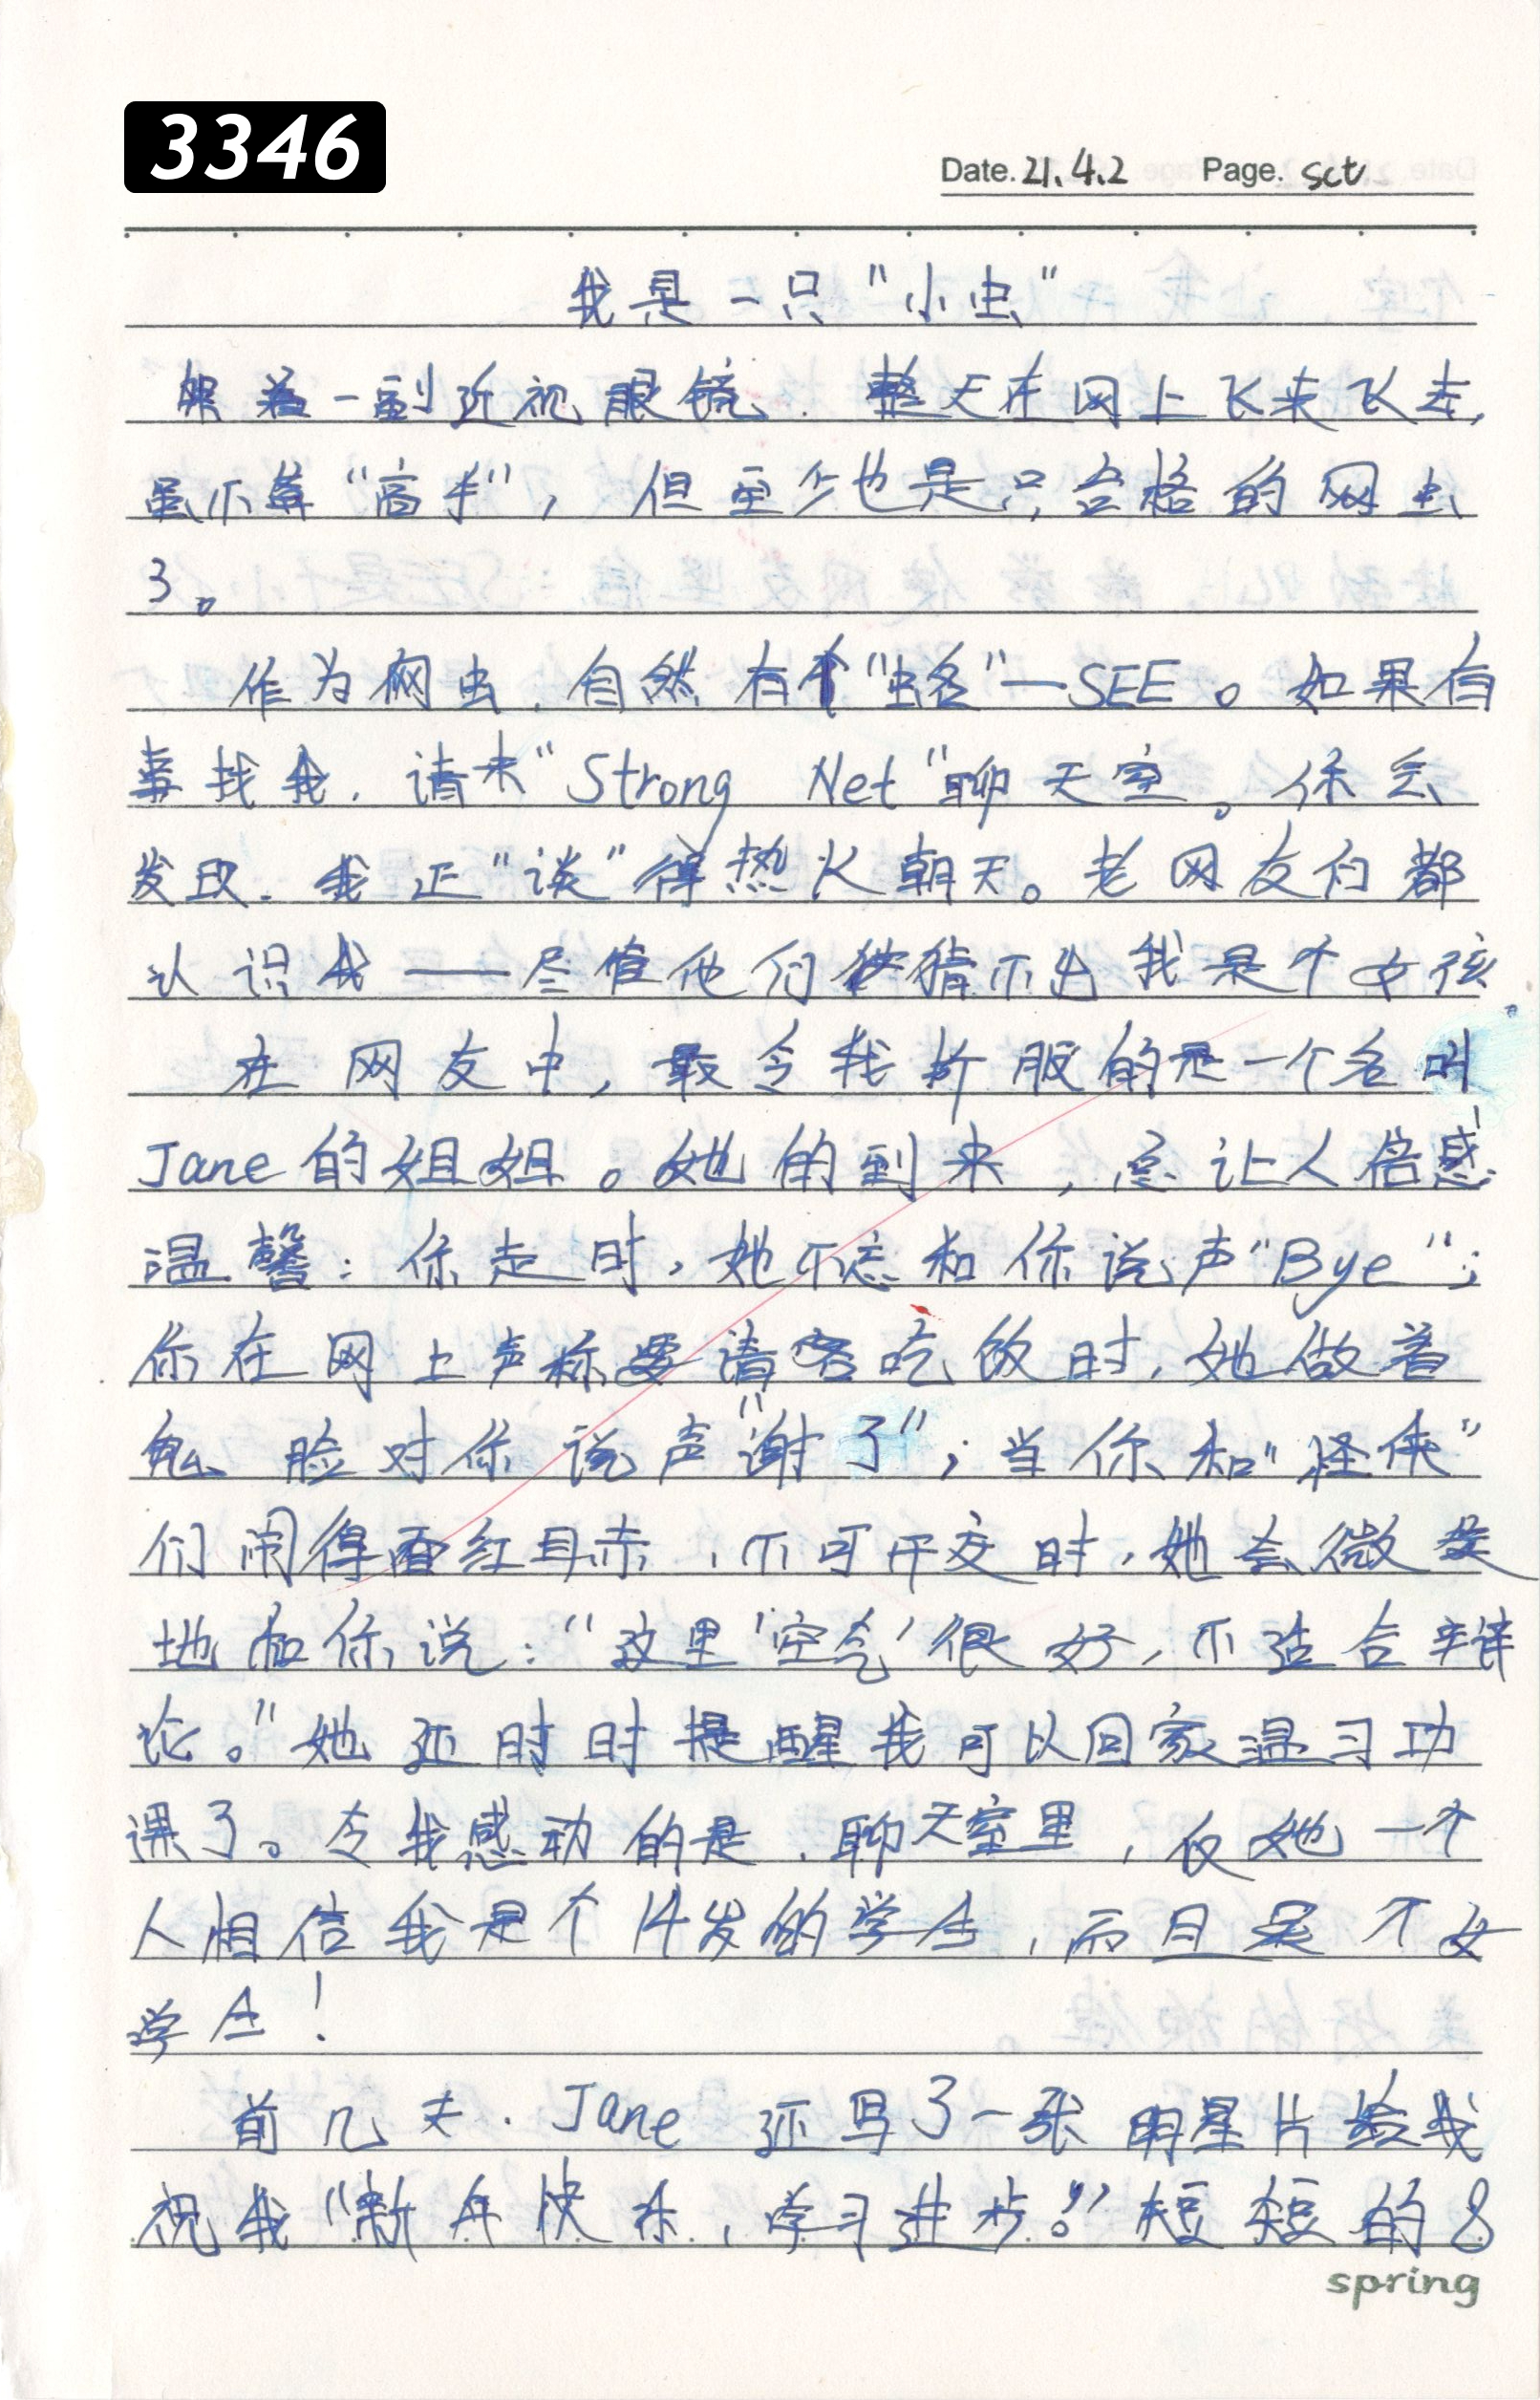 3346
Date. 21.4.2 Page. sct
我是一只"小虫"
架着一副近视眼镜.整天在网上飞来飞去,
虽不算"高手",但至少也是只合格的网虫
了。
作为网虫,自然有个"虫名"—SEE。如果有
事找我,请来"Strong Net"聊天室。你会
发现.我正"谈"得热火朝天。老网友们都
认识我——尽管他们猜不出我是个女孩
在网友中,最令我折服的是一个名叫
Jane的姐姐。她的到来,总让人倍感
温馨:你走时,她不忘和你说声"Bye";
你在网上声称要请客吃饭时,她做着
鬼脸对你说声"谢了";当你和"怪侠"
们闹得面红耳赤,不可开交时,她会微笑
地和你说:"这里'空气'很好,不适合辩
论。"她还时时提醒我可以回家温习功
课了。令我感动的是.聊天室里,仅她一个
人相信我是个14岁的学生,而且是个女
学生!
前几天.Jane还写了一张明星片给我
祝我"新年快乐,学习进步。"短短的8
spring